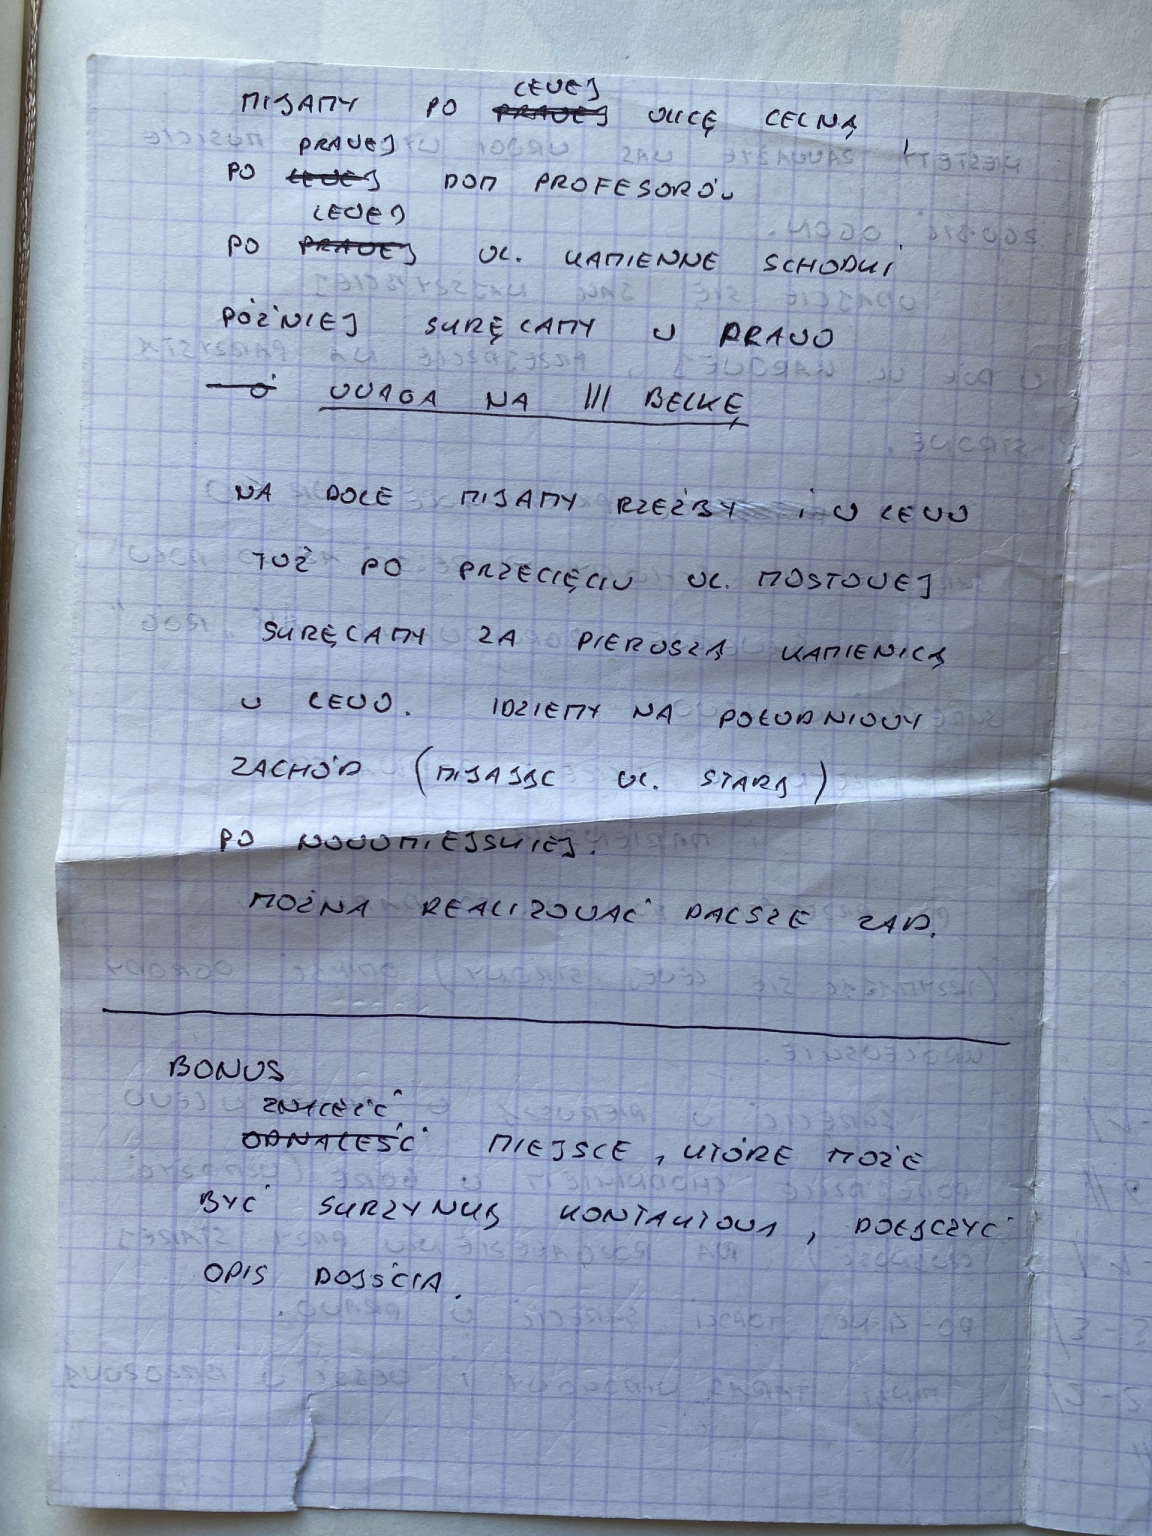 MIJAMY PO LEWEJ PRAWEJ ULICĘ CELNĄ,
PO PRAWEJ LEWEJ DOM PROFESORÓW
PO LEWEJ PRAWEJ UL. KAMIENNE SCHODKI
PÓŹNIEJ SKRĘCAMY W PRAWO
UWAGA NA III BELKĘ
NA DOLE MIJAMY RZEŹBY I W LEWO
TUŻ PO PRZECIĘCIU UL. MOSTOWEJ
SKRĘCAMY ZA PIERWSZĄ KAMIENICĄ
W LEWO. IDZIEMY NA POŁUDNIOWY
ZACHÓD (MIJAJĄC UL. STARĄ)
PO NOWOMIEJSKIEJ.
MOŻNA REALIZOWAĆ DALSZE ZAD.
BONUS
ZNALEŹĆ
ODNALEŚĆ MIEJSCE, KTÓRE MOŻE
BYĆ SKRZYNKĄ KONTAKTOWĄ, DOŁĄCZYĆ
OPIS DOJŚCIA.